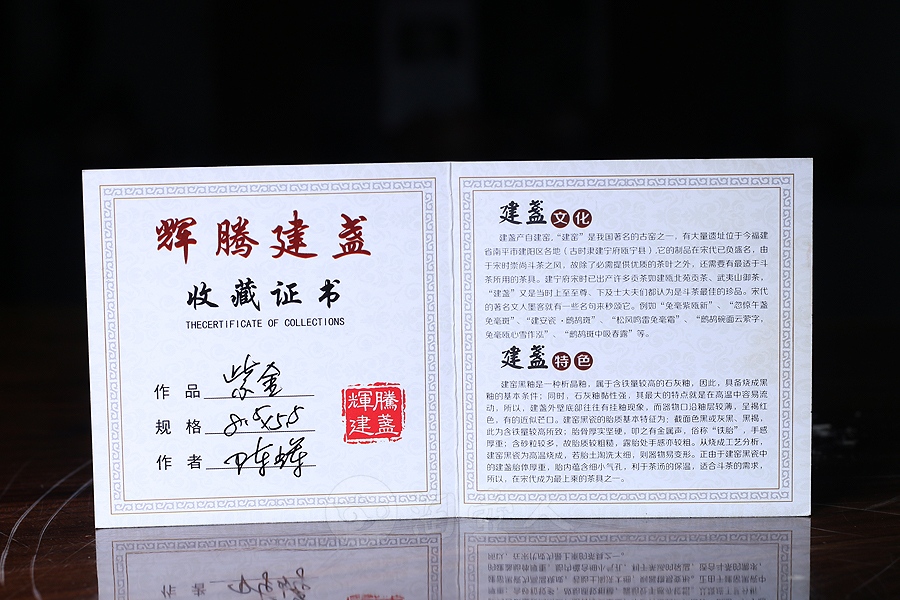 辉腾建盏
收藏证书
THECERTIFICATE OF COLLECTIONS
作 品 紫金
规 格 8.5x5.5
作 者
輝騰
建盏
建盏 文化
建盏产自建窑，“建窑”是我国著名的古窑之一，有大量遗址位于今福建
省南平市建阳区各地（古时隶建宁府瓯宁县），它的制品在宋代已负盛名，由
于宋时崇尚斗茶之风，故除了必需提供优质的茶叶之外，还需要有最适于斗
茶所用的茶具。建宁府宋时已出产许多贡茶如建瓯北苑贡茶、武夷山御茶，
“建盏”又是当时上至至尊、下及士大夫们都认为是斗茶最佳的珍品。宋代
的著名文人墨客就有一些名句来秒颂它。例如“兔毫紫瓯新”、“忽惊午盏
兔毫斑”、“建安瓷·鹧鸪斑”、“松风鸣雷兔毫霜”、“鹧鸪碗面云萦字，
兔毫瓯心雪作泓”、“鹧鸪斑中吸春露”等。
建盏 特色
建窑黑釉是一种析晶釉，属于含铁量较高的石灰釉，因此，具备烧成黑
釉的基本条件；同时，石灰釉黏性强，其最大的特点就是在高温中容易流
动，所以，建盏外壁底部往往有挂釉现象，而器物口沿釉层较薄，呈褐红
色，有的近似芒口。建窑黑瓷的胎质基本特征为：截面色黑或灰黑、黑褐，
此为含铁量较高所致；胎骨厚实坚硬，叩之有金属声，俗称“铁胎”，手感
厚重；含砂粒较多，故胎质较粗糙，露胎处手感亦较粗。从烧成工艺分析，
建窑黑瓷为高温烧成，若胎土淘洗太细，则器物易变形。正由于建窑黑瓷中
的建盏胎体厚重，胎内蕴含细小气孔，利于茶汤的保温，适合斗茶的需求，
所以，在宋代成为最上乘的茶具之一。